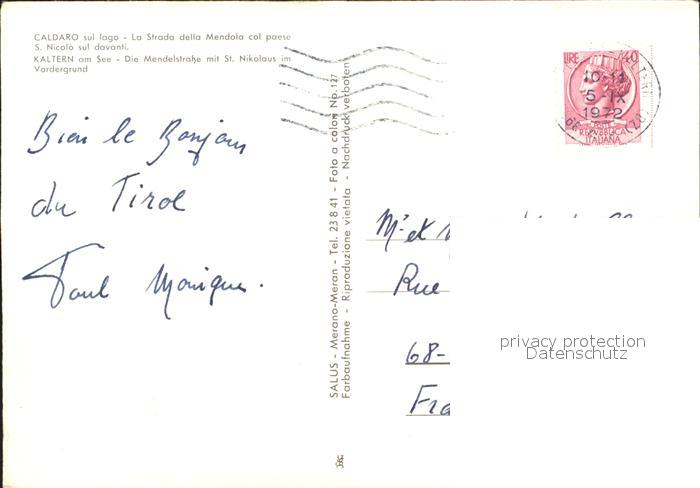 CALDARO sul lago - La Strada della Mendola col paese
S. Nicolò sul davanti.
KALTERN am See - Die Mendelstraße mit St. Nikolaus im
Vordergrund
Bien le Bonjour
du Tirol
Paul Monique.
SALUS - Merano-Meran - Tel. 23 8 41 - Foto a colori No. 127
Farbaufnahme - Riproduzione vietata - Nachdruck verboten
LIRE 40
10-11
5-IX
1972
REPVBBLICA
ITALIANA
Mr et
Rue
68-
Fra
privacy protection
Datenschutz